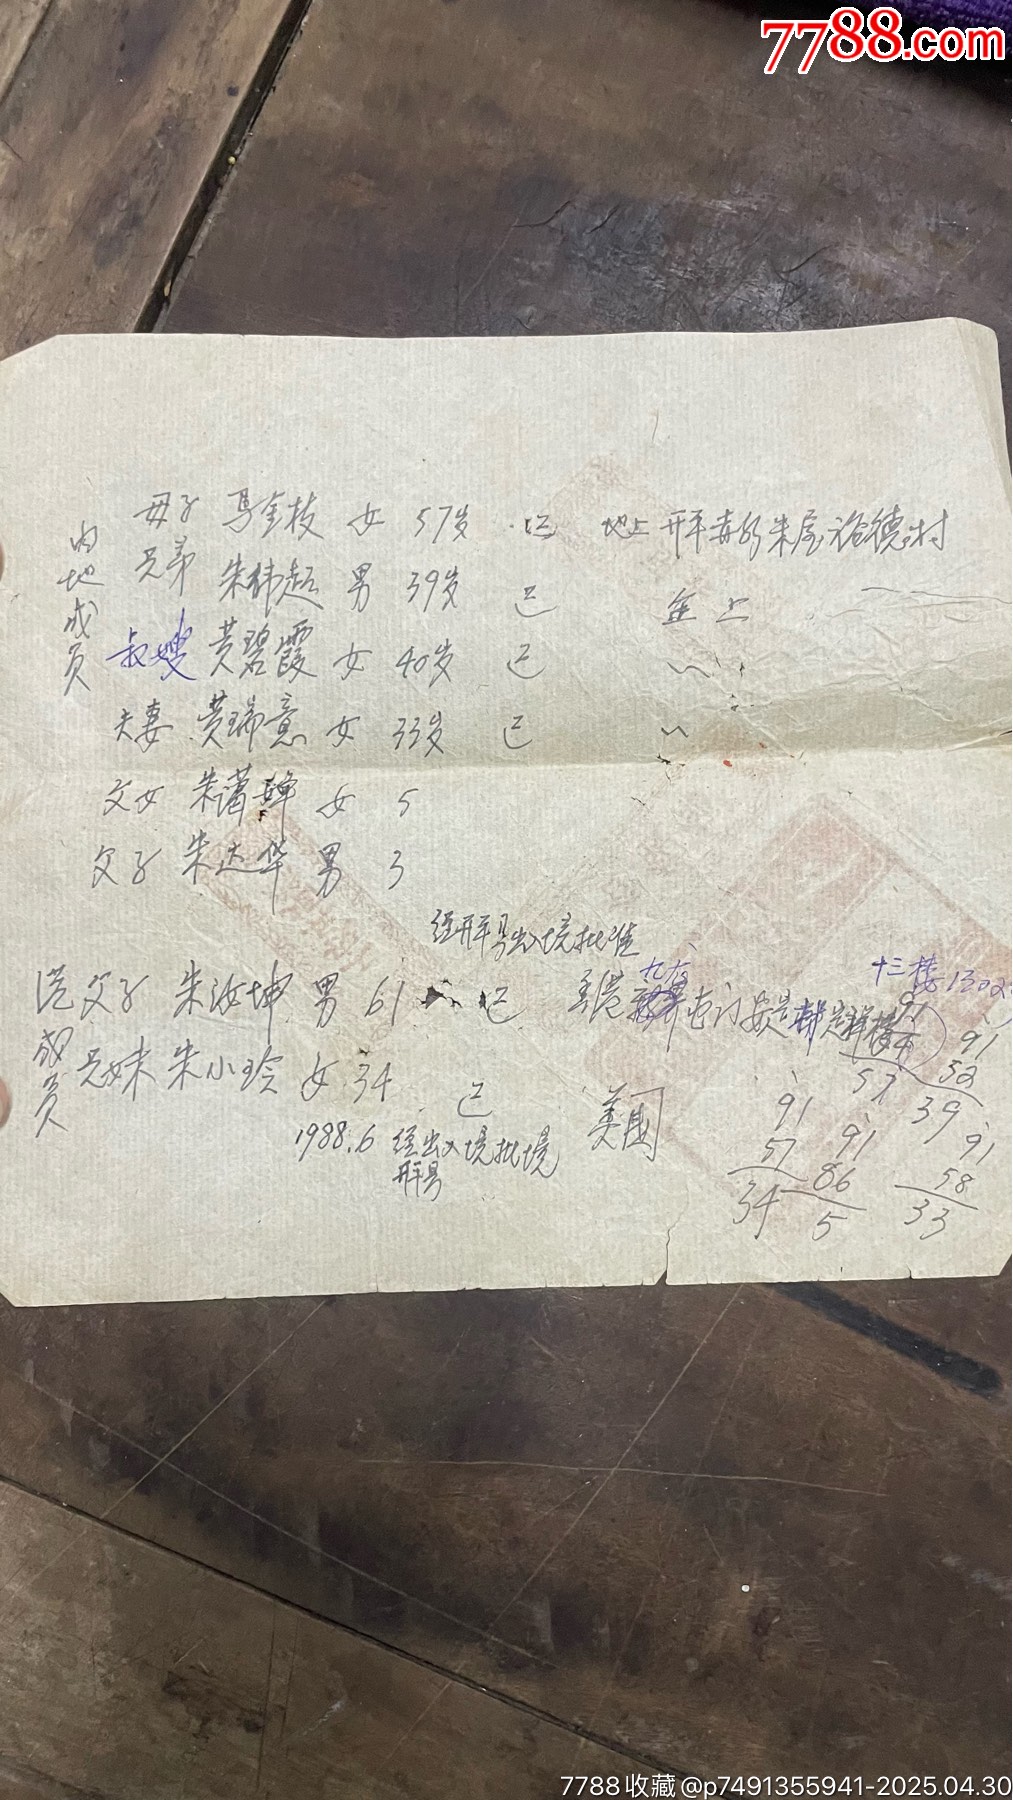 7788.com
内地成员
母子 馬金枝 女 57岁 已 地址 开平赤坎朱屋裕德村
兄弟 朱伟超 男 39岁 已 仝上
叔嫂 黄碧霞 女 40岁 已 〃
夫妻 黄瑞意 女 33岁 已 〃
父女 朱 女 5
父子 朱达华 男 3
经开平县出入境批准
港成员
父子 朱汝坤 男 61 已 香港九龙屯门安定邨定祥楼
十三楼1302
兄妹 朱小玲 女 34 已 美國
1988.6 经开平县出入境批境
91
34
57
91
52
39
91
57
34
91
86
5
91
58
33
7788收藏@p7491355941-2025.04.30